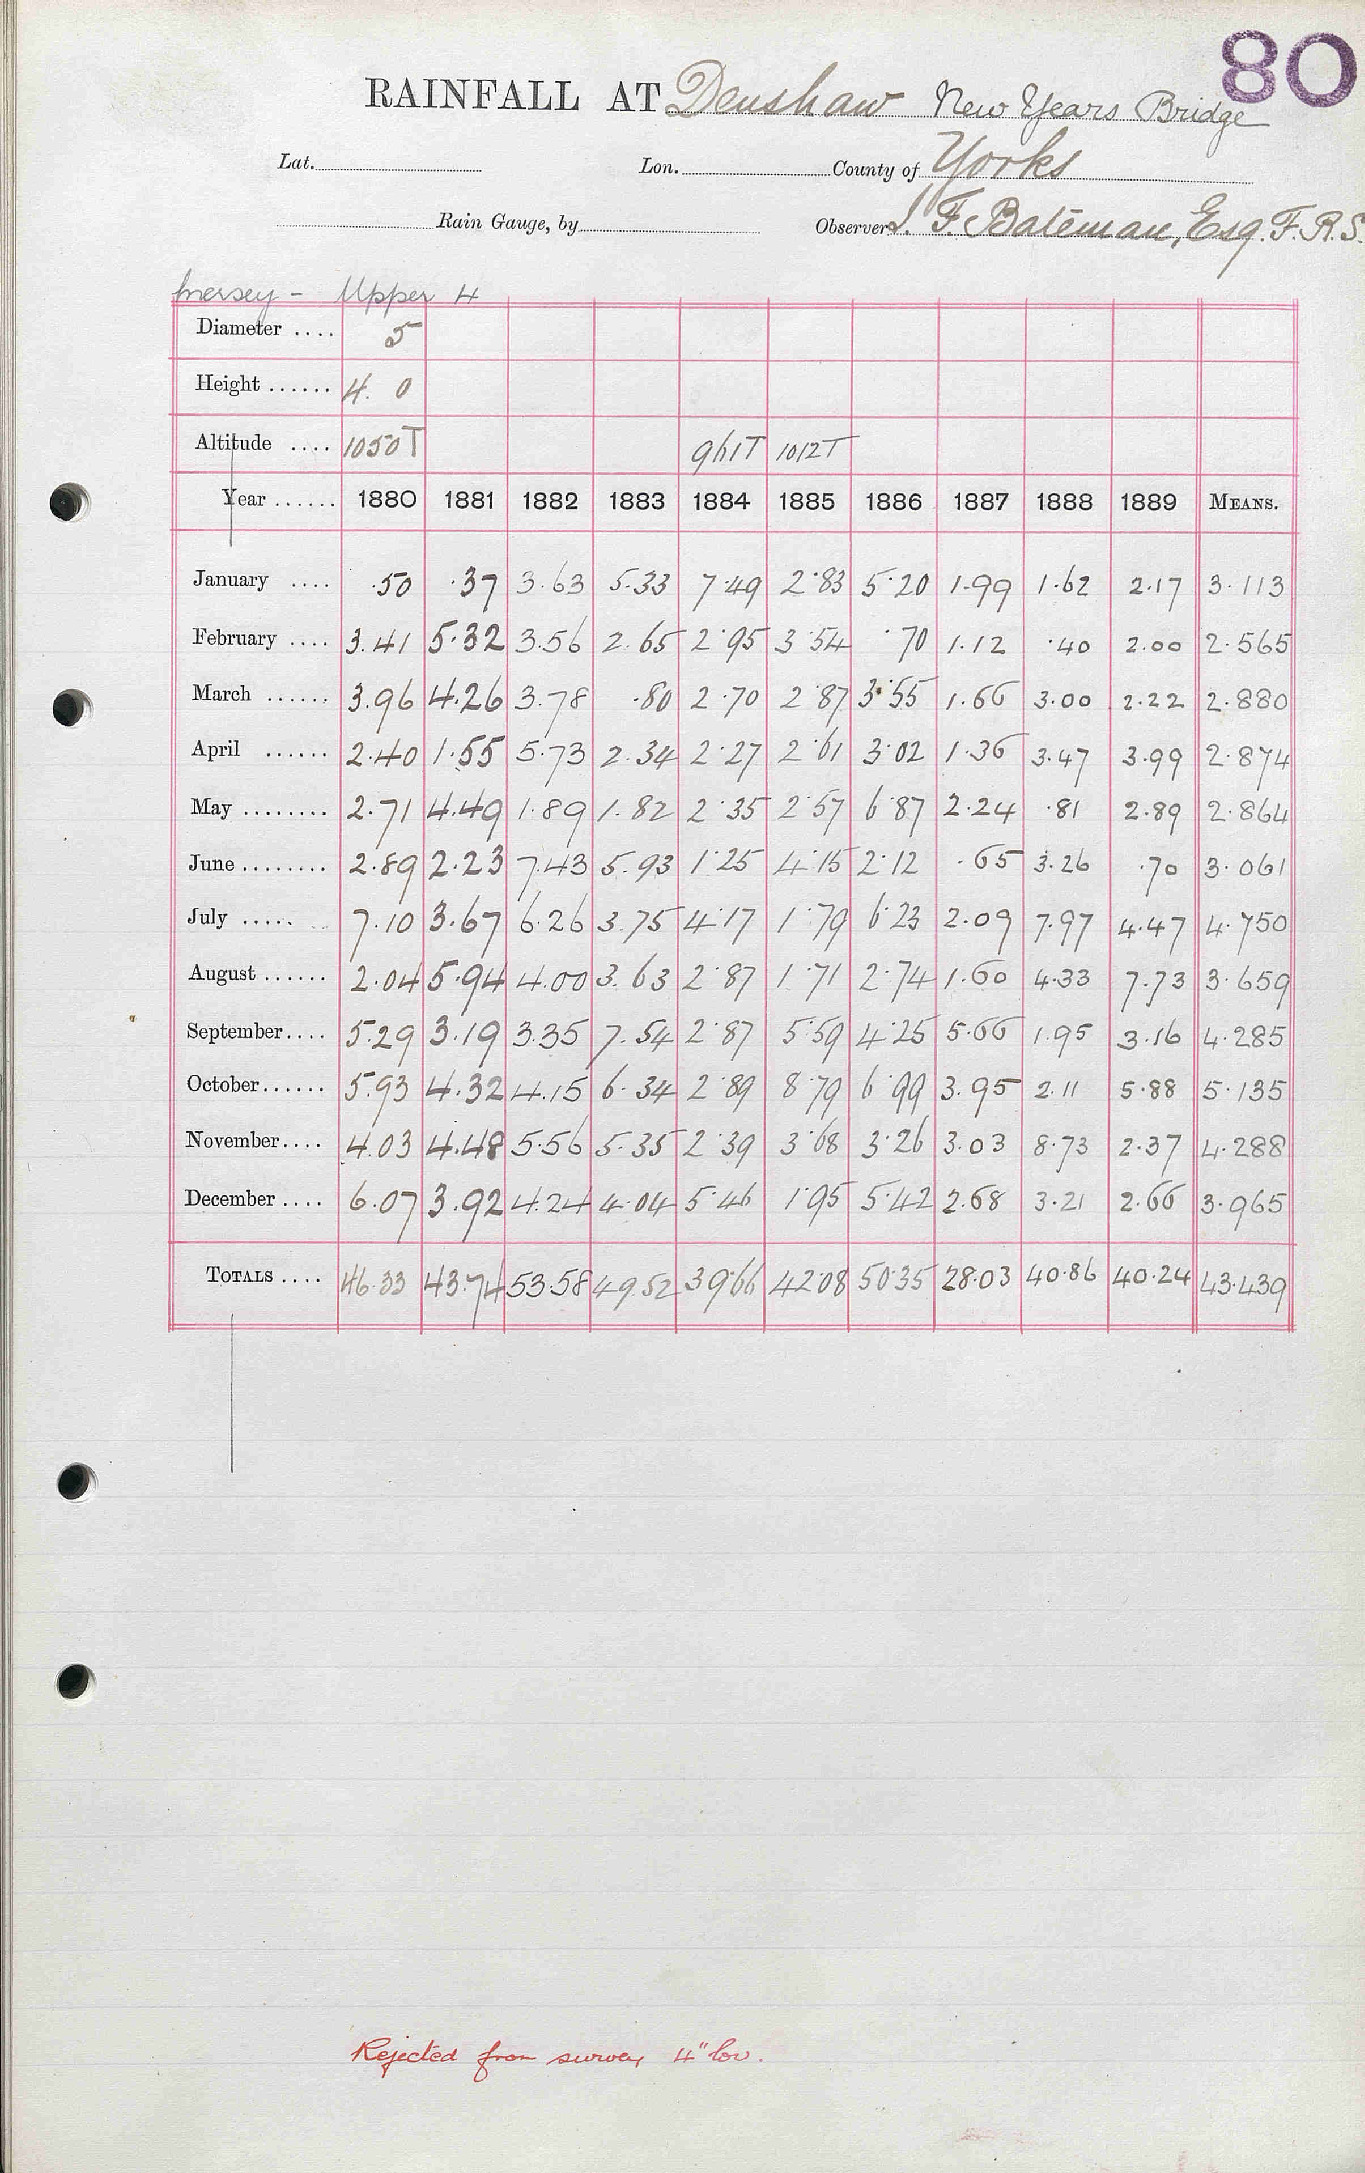 80
RAINFALL AT Denshaw New Years Bridge
Lat. Lon. County of Yorks
Rain Gauge, by Observer J. F. Bateman, Esq. F.R.S.
Mersey - Upper 4
Diameter .... 5
Height ...... 4. 0
Altitude .... 1050T 961T 1012T
Year ...... 1880 1881 1882 1883 1884 1885 1886 1887 1888 1889 MEANS.
January .... .50 .37 3.63 5.33 7.49 2.83 5.20 1.99 1.62 2.17 3.113
February .... 3.41 5.32 3.56 2.65 2.95 3.54 .70 1.12 .40 2.00 2.565
March ...... 3.96 4.26 3.78 .80 2.70 2.87 3.55 1.66 3.00 2.22 2.880
April ...... 2.40 1.55 5.73 2.34 2.27 2.61 3.02 1.36 3.47 3.99 2.874
May ........ 2.71 4.49 1.89 1.82 2.35 2.57 6.87 2.24 .81 2.89 2.864
June ........ 2.89 2.23 7.43 5.93 1.25 4.15 2.12 .65 3.26 .70 3.061
July ..... 7.10 3.67 6.26 3.75 4.17 1.79 6.23 2.09 7.97 4.47 4.750
August ...... 2.04 5.94 4.00 3.63 2.87 1.71 2.74 1.60 4.33 7.73 3.659
September.... 5.29 3.19 3.35 7.54 2.87 5.59 4.25 5.66 1.95 3.16 4.285
October...... 5.93 4.32 4.15 6.34 2.89 8.79 6.99 3.95 2.11 5.88 5.135
November.... 4.03 4.48 5.56 5.35 2.39 3.68 3.26 3.03 8.73 2.37 4.288
December .... 6.07 3.92 4.24 4.04 5.46 1.95 5.42 2.68 3.21 2.66 3.965
TOTALS .... 46.33 43.74 53.58 49.52 39.66 42.08 50.35 28.03 40.86 40.24 43.439
Rejected from survey 4" low.